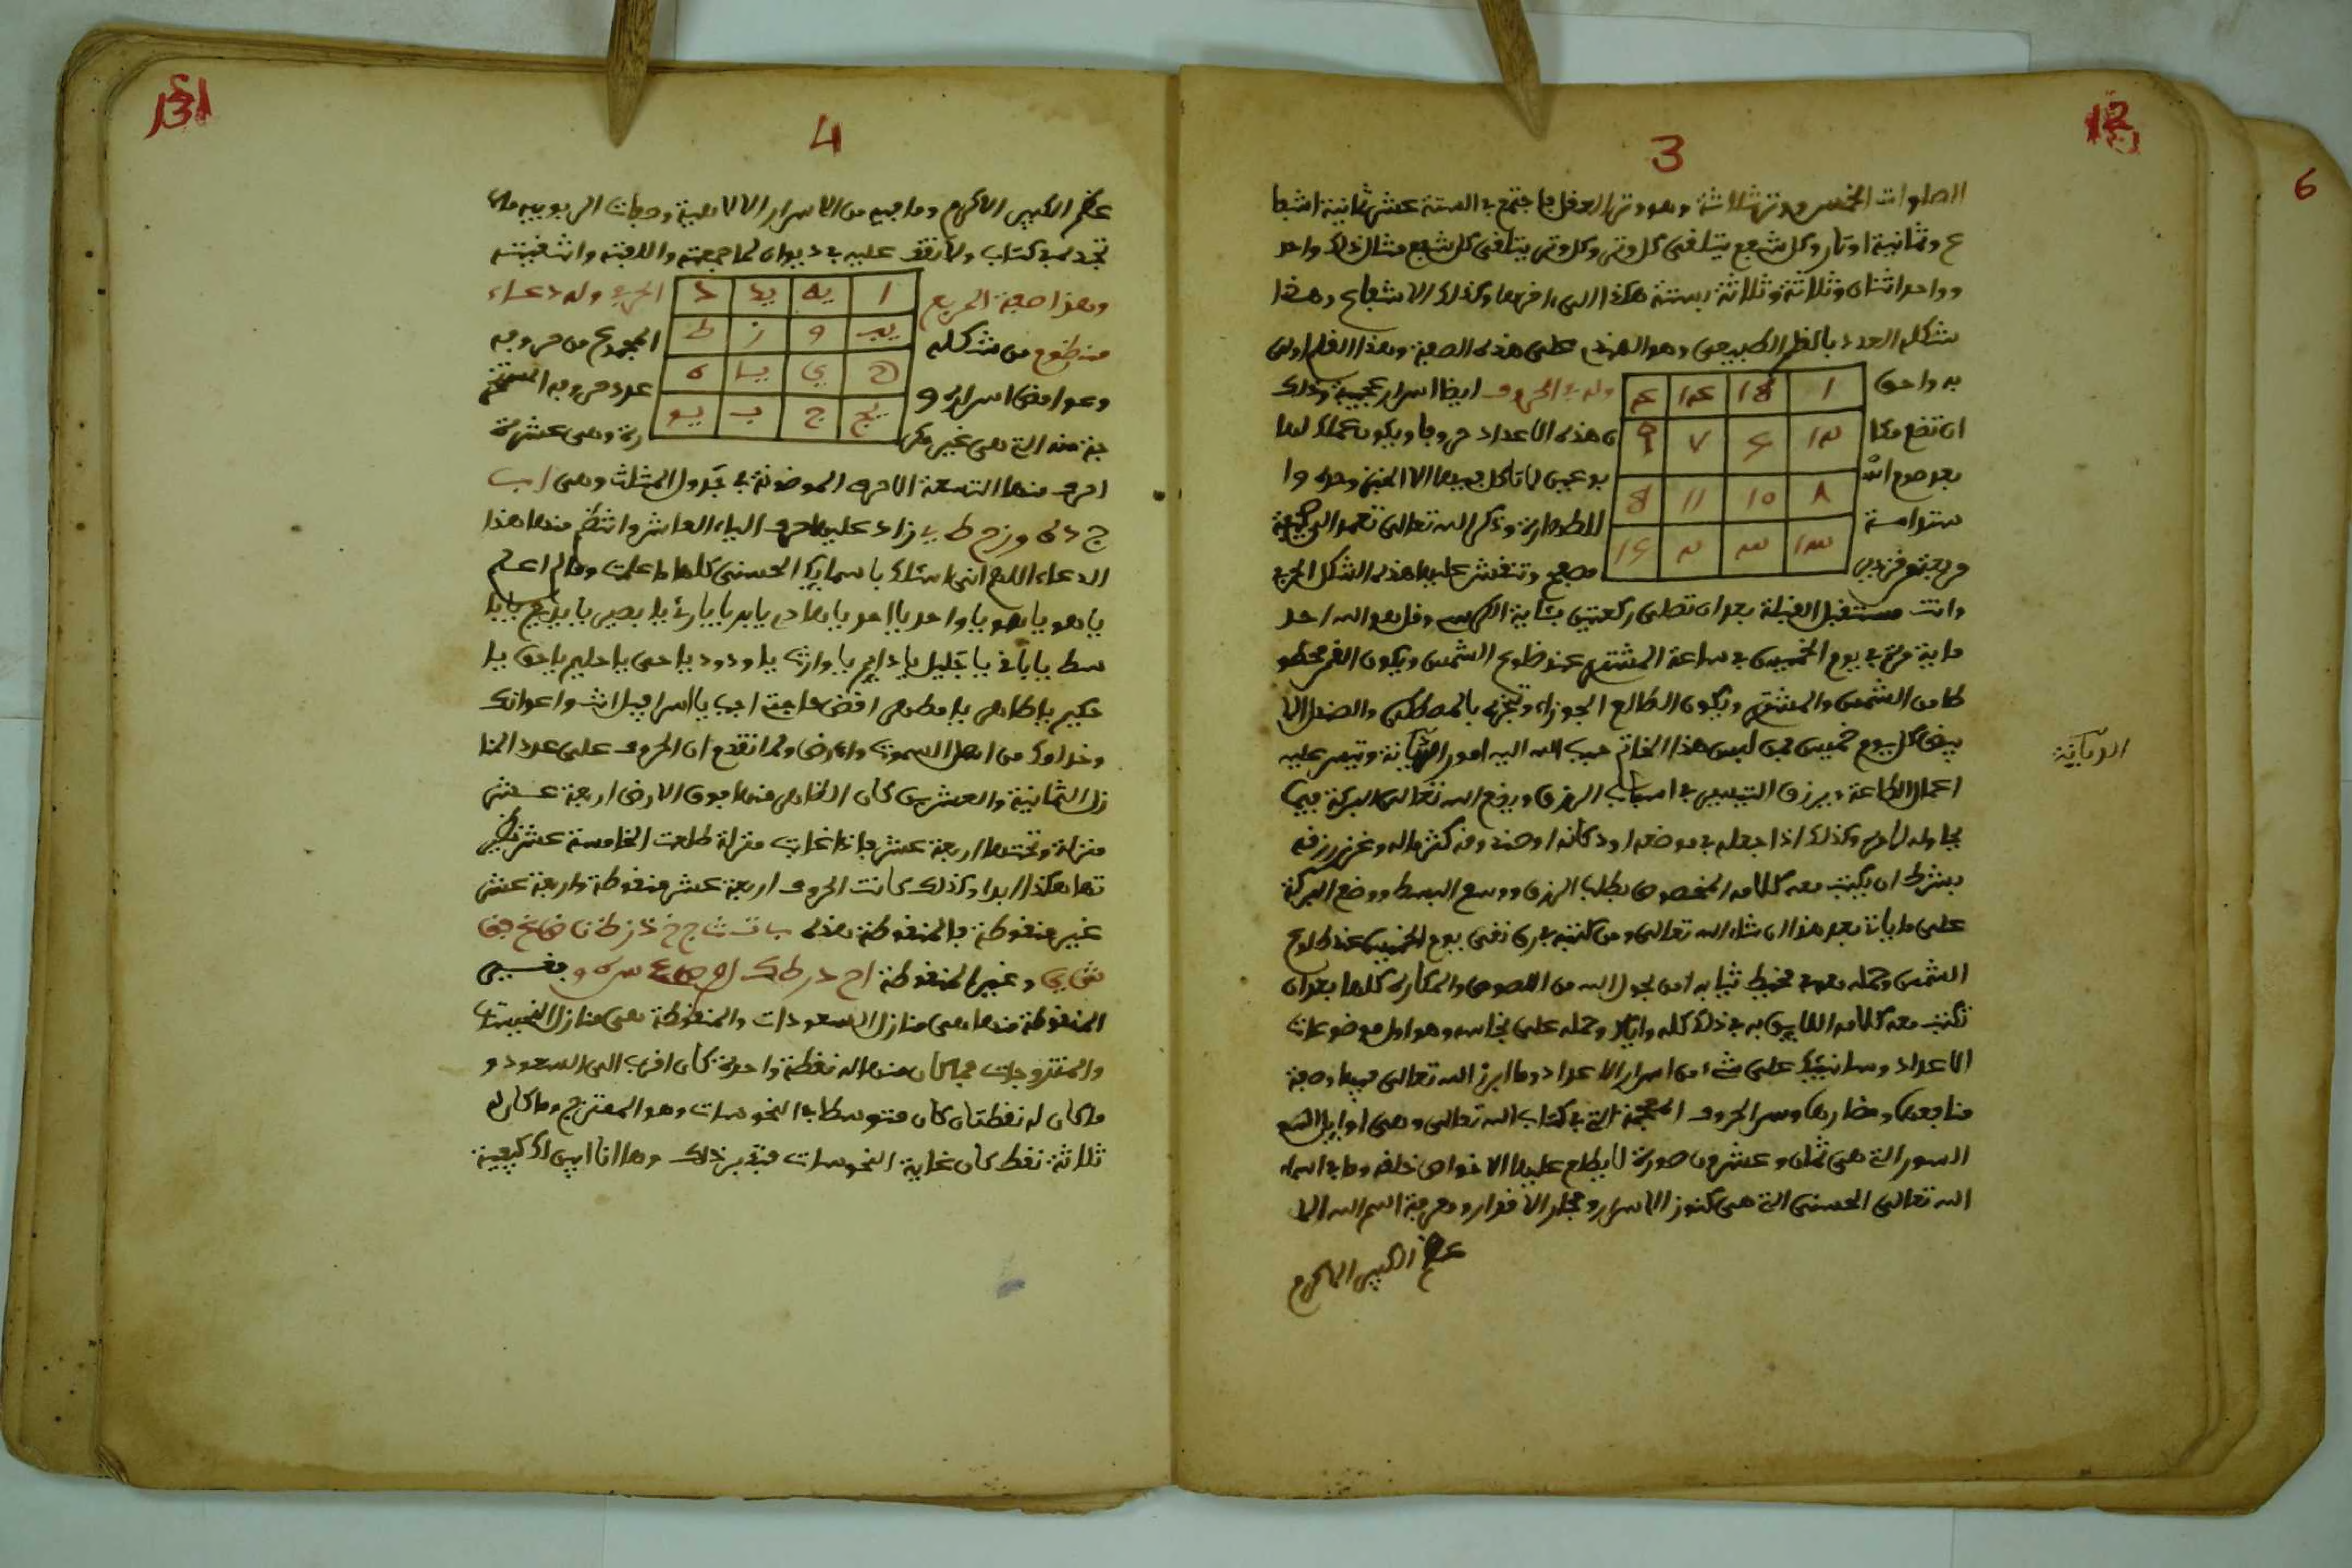 3
الصلوات الخمس ووترثلاثة وهو وتر العقل فاجتمع في الستة عشر ثمانية اشفا
ع وثمانية اوتار وكل شفع يتلقى كل وتر وكل وتر يتلقى كل شفع مثال ذلك واحد
وواحد اثنان وثلاثة وثلاثة بستة هكذا الى اخرها وكذلك الاشفاع وهذا
شكله العدد بالقلم الطبيعي وهو الهندي على هذه الصفة وهذا القلم اولى
به واحق
وله في الحروف ايضا اسرار عجيبة وذلك
ان تضع هذا
ن هذه الاعداد حروفا ويكون عملك لها
بعد صوم
لا تاكل فيهما الا الخبز وحده وا
ستدامة
للطهارة وذكر الله تعالى تعمد الى صحيفة
وتنقش عليها هذه الشكل المربع
وانت مستقبل القبلة بعد ان تصلي ركعتين بئاية الكرسي وقل هو الله احد
ماية مرة في يوم الخميس في ساعة المشتري عند طلوع الشمس ويكون القمر محظو
ظا من الشمس والمشتري ويكون الطالع الجوزاء وتبخره بالمصطكى والصندل الا
بيض كل يوم خميس فمن لبس هذا الخاتم حبب الله اليه امور الديانة وتيسر عليه
الديانة
اعمال الطاعة ويرزق التيسير في اسباب الرزق ويضع الله تعالى البركة فيما
يحاوله لادم وكذلك اذا جعله في موضعه او دكانه او صندوقه كثر ماله وغزر رزقه
بشرط ان يكتب معه كلامه المخصوص بطلب الرزق ووسع البسط ووضع البركة
على ما ياتي بعد هذا ان شاء الله تعالى ومن كتبه في رق نقي يوم الخميس عند طلوع
الشمس وحمله معه في مخيط ثيابه امن بحول الله من اللصوص والمكاره كلها بعد ان
تكتب معه كلامه اللايق به في ذلك كله واياك وحمله على نجاسه وهو اول موضوعات
الاعداد وسانبئك على شيء من اسرار الاعداد وما ابرز الله تعالى فيها وصفة
منافعها ومضارها وسر الحروف المعجمة التي في كتاب الله تعالى وهي اوايل
السور التي هي ثمان وعشرون صورة لا يطلع عليها الا خواص خلقه وما في اسماء
الله تعالى الحسنى التي هي كنوز الاسرار ومحل الانوار ومعرفة اسم الله الا
عظم الكبير الاكرم
6
4
عظم الكبير الاكرم وما فيه من الاسرار الالاهية وصفات الربوبية مالا
تجده في كتاب ولا تقف عليه في ديوان لما جمعته والفته وانتخبته
وهذا صفة المربع
الحرفي وله دعاء
منظوم من شكله
المجموع من حروفه
وغوامض اسراره و
عدد حروفه المستخر
جة منه التي هي غير مكر
رة وهي عشرة
احرف منها التسعة الاحرف الموضوعة في جدول المثلث وهي ا ب
ج د ه و ز ح ط ي زاد عليها حرف الياء العاشر وانتظم منها هذا
الدعاء اللهم اني اسئلك باسمايك الحسنى كلها ما علمت وما لم اعلم
يا هو يا هو يا واحد يا احد يا هادي يا بر يا بارئ يا بصير يا بديع يا با
سط يا باقي يا جليل يا دايم يا وارث يا ودود يا حي يا حليم يا حق يا
حكيم يا طاهر يا مطهر اقض حاجتي اجب يا اسرافيل انت واعوانك
وخدامك من اهل السموت والارض ولما تقدم ان الحروف على عدد المنا
زل الثمانية والعشرين كان الظاهر منها فوق الارض اربعة عشر
منزلة وتحتها اربعة عشر فاذا غابت منزلة طلعت الخامسة عشر نظير
تها هكذا ابدا وكذلك كانت الحروف اربعة عشر منقوطة واربعة عشر
غير منقوطة فالمنقوطة هذه ب ت ث ج خ ذ ز ظ ن ض غ ف ق
ش ي وغير المنقوطة ا ح د ر ط ك ل م ص ع س ه و فغير
المنقوطة منها هي منازل السعودات والمنقوطة هي منازل النحيسات
والممتزجات فما كان منها له نقطة واحدة كان اقرب الى السعود و
ما كان له نقطتان كان متوسطا في النحوسات وهو الممتزج وما كان له
ثلاثة نقط كان غاية النحوسات فتدبر ذلك وها انا ابين لك كيفية